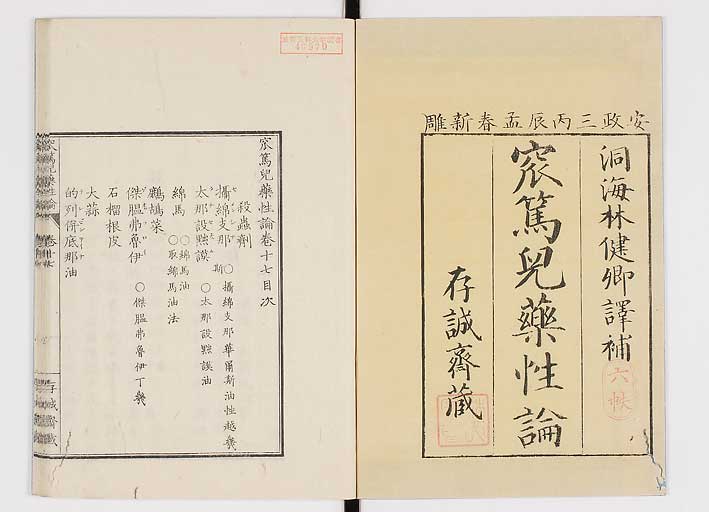 安政三丙辰孟春新雕
洞海林健卿譯補
窊篤兒藥性論
存誠齋藏
六帙
窊篤兒藥性論卷十七目次
殺蟲劑
攝綿支那 ○攝綿支那華爾斯油性越幾斯
太那設黙謨 ○太那設黙謨油
綿馬 ○綿馬油 ○取綿馬油法
鷓鴣菜
傑膃弗魯伊 ○傑膃弗魯伊丁幾
石榴根皮
大蒜
的列併底那油
窊篤兒藥性論 卷十七
存誠齋藏